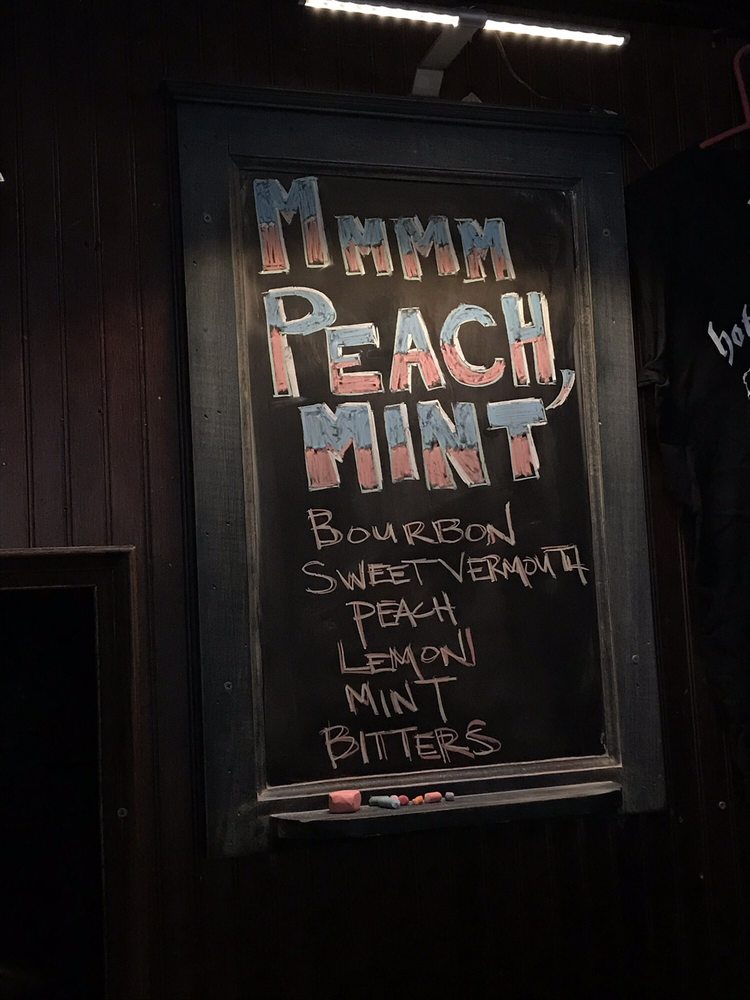 MMMM
PEACH,
MINT
BOURBON
SWEET VERMOUTH
PEACH
LEMON
MINT
BITTERS